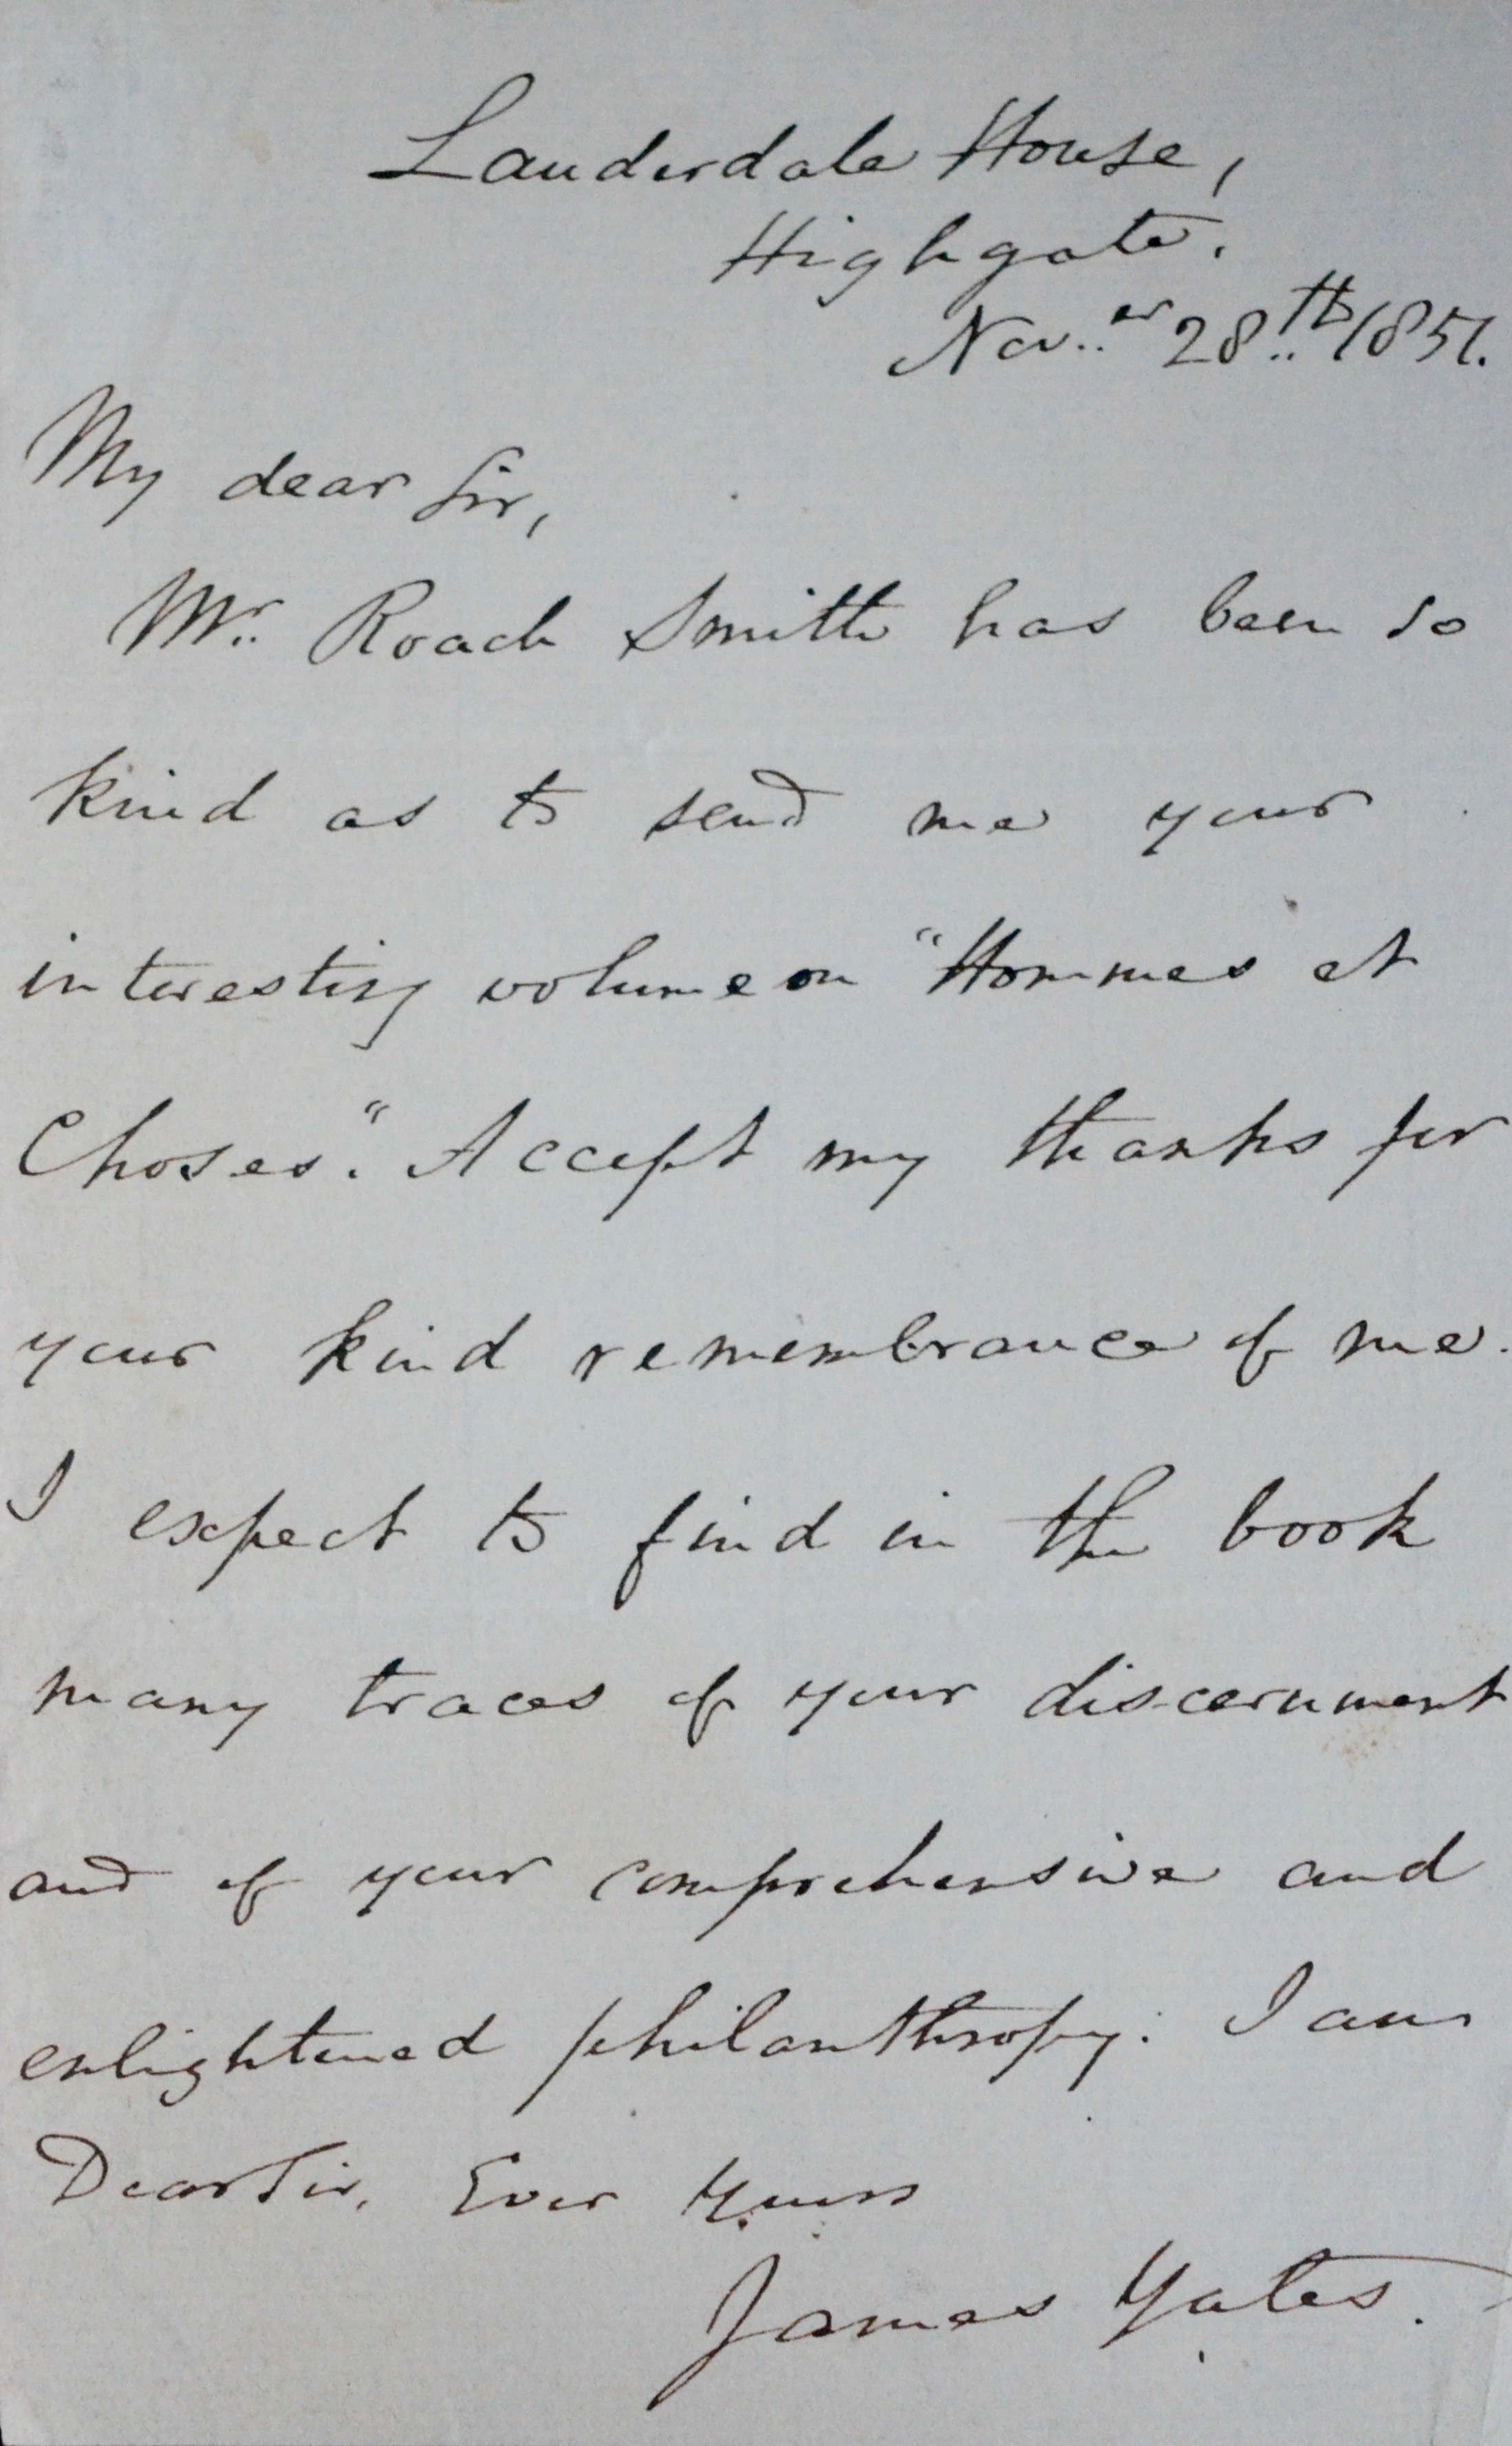 Lauderdale House,
Highgate.
Nov.er 28th 1851.
My dear Sir,
Mr. Roach Smith has been so
kind as to send me your
interesting volume on "Hommes et
Choses." Accept my thanks for
your kind remembrance of me.
I expect to find in the book
many traces of your discernment
and of your comprehensive and
enlightened philanthropy. I am
Dear Sir, Ever Yours
James Yates.